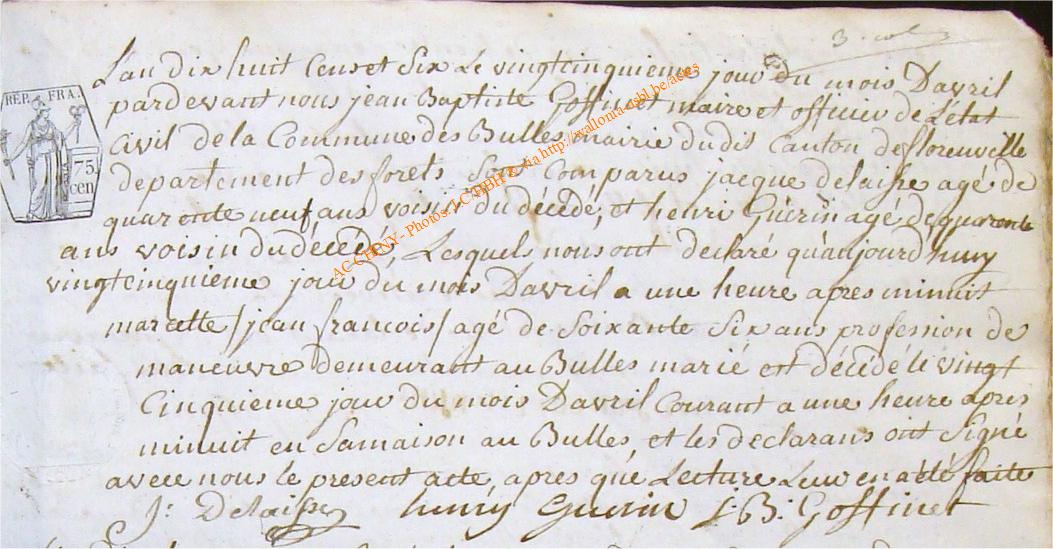 3. vol
L'an dix huit Cens et Six Le vingtcinquieme jour du mois Davril
REP. FRA.
pardevant nous jean Baptiste Goffinet maire et officier de L'état
Civil de la Commune des Bulles mairie dudit Canton de florenville
75.
cen
departement des forets Sont Comparus jacque delaisse agé de
quaronte neuf ans voisin du décédé, et henri Guérin agé de quaronte
ans voisin du décédé, Lesquels nous ont declaré qu'aujourdhuy
vingtcinquieme jour du mois Davril a une heure apres minuit
marcette / jean francois / agé de Soixante Six ans profession de
maneuvre demeurant au Bulles marié est décédé le vingt
Cinquieme jour du mois Davril Courant a une heure apres
minuit en Samaison au Bulles, et les declarans ont Signé
avece nous le present acte, apres que Lecture Leur en a été faite
J: Delaisse henry Guerin J:B: Goffinet
AC-CHINY- Photos via http://wallonia-asbl.be/actes